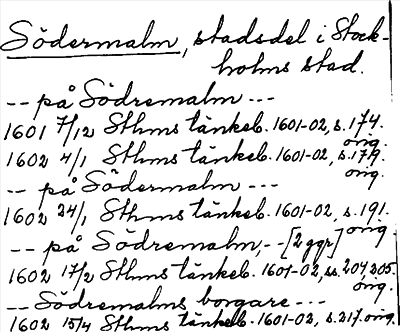 Södermalm, stadsdel i Stock-
holms stad.
-- på Södremalm ---
1601 7/12 Sthms tänkeb. 1601-02, s. 174.
orig.
1602 4/1 Sthms tänkeb. 1601-02, s. 179.
orig.
-- på Södermalm ---
1602 24/1 Sthms tänkeb. 1601-02, s. 191.
orig.
-- på Södremalm, -- [2 ggr]
1602 17/2 Sthms tänkeb. 1601-02, ss. 204, 205.
orig.
-- Södremalms borgare ---
1602 15/4 Sthms tänkeb. 1601-02, s. 217. orig.